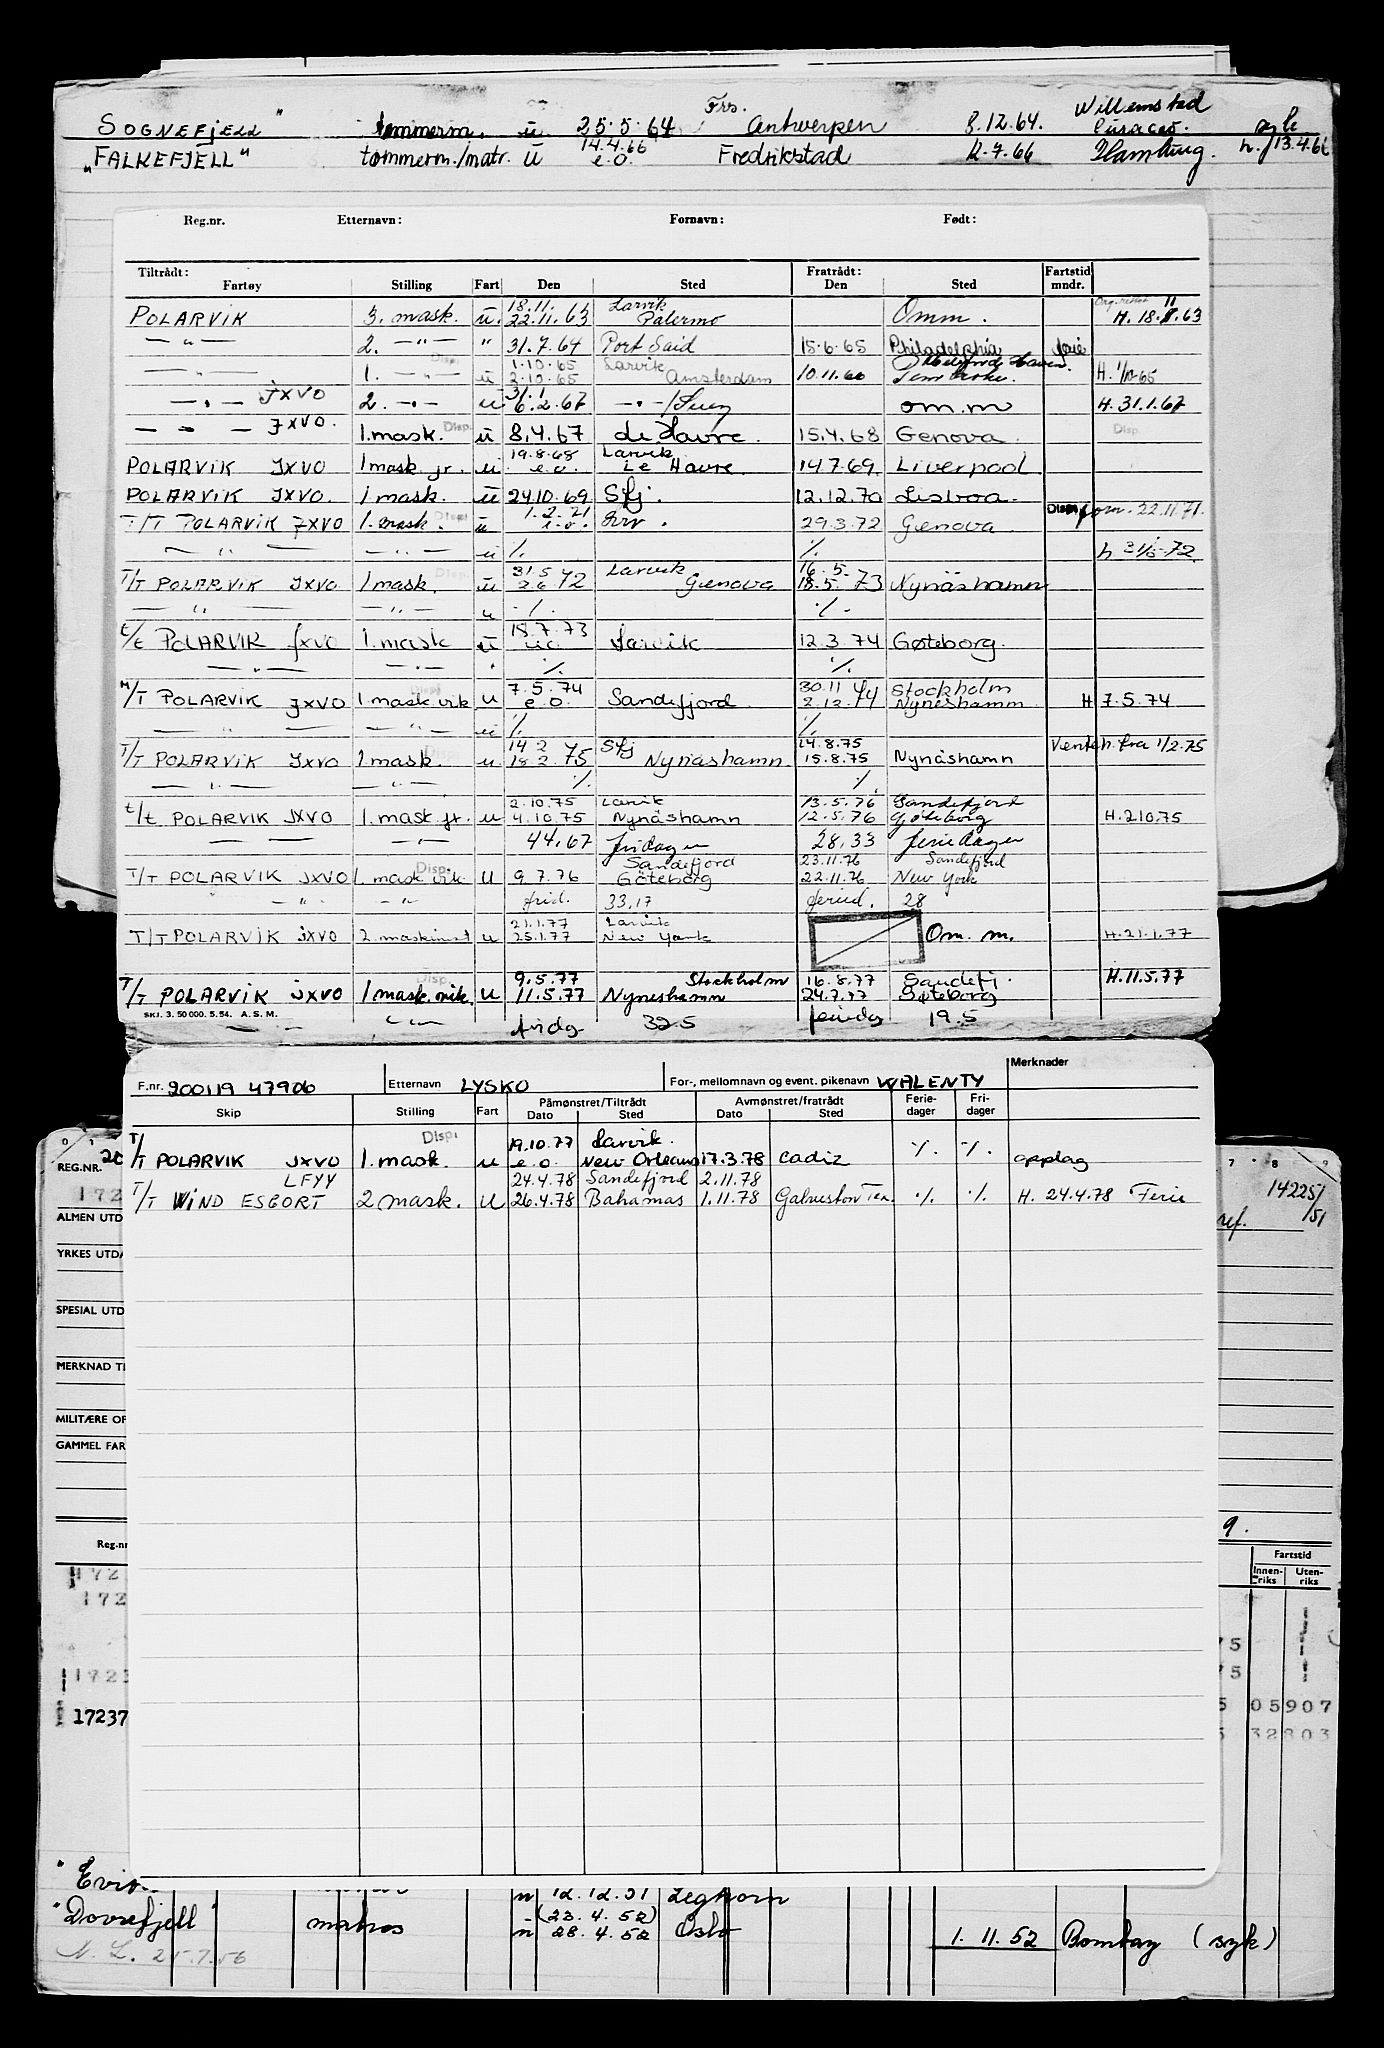 SOGNEFJELL" tømmerm. u 25.5.64 Frs. Antwerpen 8.12.64. Willemstad Curacao. syk
"FALKEFJELL" tømmerm./matr. u 14.4.66 e.o. Fredrikstad 12.7.66 Hamburg. h. 13.4.66
Reg.nr. Etternavn: Fornavn: Født:
Tiltrådt: Fratrådt: Fartstid
Fartøy Stilling Fart Den Sted Den Sted mndr.
18.11. Larvik
POLARVIK 3. mask. u. 22.11.63 Palermo Omm. H. 18.11.63
— " — 2. — " — " 31.7.64 Port Said 15.6.65 Philadelphia ferie
Disp. 1.10.65 Larvik
— " — 1. — " — u 2.10.65 Amsterdam 10.11.66 H. 1/10-65
— " — JXVO 2. — " — u 31.1 6.2.67 — " — / Suez om.m H. 31.1.67
— " — JXVO. 1. mask. Disp. u 8.4.67 Le Havre. 15.4.68 Genova. Disp.
19.8.68 Larvik
POLARVIK JXVO 1 mask. jr. u e.o. Le Havre. 14.7.69. Liverpool.
POLARVIK JXVO. 1 mask. u 24.10.69 Sfj. 12.12.70 Lisboa.
T/T POLARVIK JXVO 1. mask. Disp. u 1.2.71 e.o. Lrv. 29.3.72 Genova Disp. 22.11.71.
— " — — " — u ./. ./. h 31/5-72
T/T POLARVIK JXVO 1 mask. Disp. u 31.5 2.6 72 Larvik Genova 16.5. 18.5. 73 Nynäshamn
— " — — " — u ./. ./.
t/t POLARVIK JXVO 1. mask u 18.7.73 Larvik 12.3.74 Gøteborg.
— " — — " — " ./. ./.
M/T POLARVIK JXVO 1 mask vik Disp. u 7.5.74 e.o. Sandefjord 30.11 2.12. 74 Stockholm Nyneshamn H 7.5.74
— " — — " — u ./. ./.
T/T POLARVIK JXVO 1 mask. Disp. u 14.2 18.2. 75 Sfj Nynäshamn. 14.8.75 15.8.75 Nynäshamn Vente h. fra 1/2.75
— " — — " — ./. ./.
2.10.75 Larvik 13.5.76 Sandefjord
t/t POLARVIK JXVO 1. mask. jr. u 4.10.75 Nynäshamn 12.5.76 Göteborg H. 2.10.75
— — " — 44,67 fridager 28,33 feriedager
Disp. Sandefjord 23.11.76 Sandefjord
T/T POLARVIK JXVO 1. mask. vik u 9.7.76 Göteborg 22.11.76 New York
— " — — " — frid. 33,17 feried. 28
21.1.77 Larvik
T/T POLARVIK JXVO 2. maskinist u 25.1.77 New York Om. m. H. 21.1.77
Disp. 9.5.77 Stockholm 16.8.77 Sandefj. H. 11.5.77
T/T POLARVIK JXVO 1 mask. vik. u 11.5.77 Nyneshamn 24.7.77 Gøteborg
SKJ. 3. 50 000. 5.54. A. S. M.
— " — — " — fridg 32.5 feriedg 19.5
F.nr. 200119 47906 Etternavn LYSKO For-, mellomnavn og event. pikenavn WALENTY Merknader
Skip Stilling Fart Påmønstret/Tiltrådt Avmønstret/fratrådt Ferie- Fri-
Dato Sted Dato Sted dager dager
Disp. 19.10.77 Larvik.
T/T POLARVIK JXVO 1. mask. u e.o. New Orleans 17.3.78 Cadiz ./. ./. opplag
LFYY 24.4.78 Sandefjord 2.11.78
T/T WIND ESCORT 2 mask. u 26.4.78 Bahamas 1.11.78 Galveston Tex. ./. ./. H. 24.4.78 Ferie
0 1 7 8 9
REG.NR. 20
172
14225/51
ALMEN UTD
ref.
YRKES UTDA
SPESIAL UTD
MERKNAD TI
MILITÆRE OF
GAMMEL FAR
9.
Reg.nr Fartstid
Innen- Uten-
riks riks
172
172
75
1723 75
17237 5 05907
5 32803
" Evi u 12.12.51 Leghorn
(23.4.52)
"Dovrefjell" matros u 28.4.52 Oslo 1.11.52 Bombay (syk)
N.L. 25.7.56